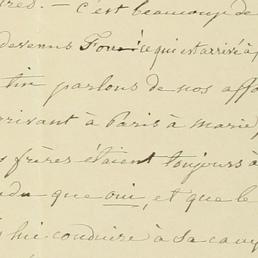 red. – C'est beaucoup de
devenus ce qui est arrivé à
tin parlons de nos affa
arrivant à Paris à Marie
s frères étaient toujours à
du que oui, et que le
lui conduire à sa cam